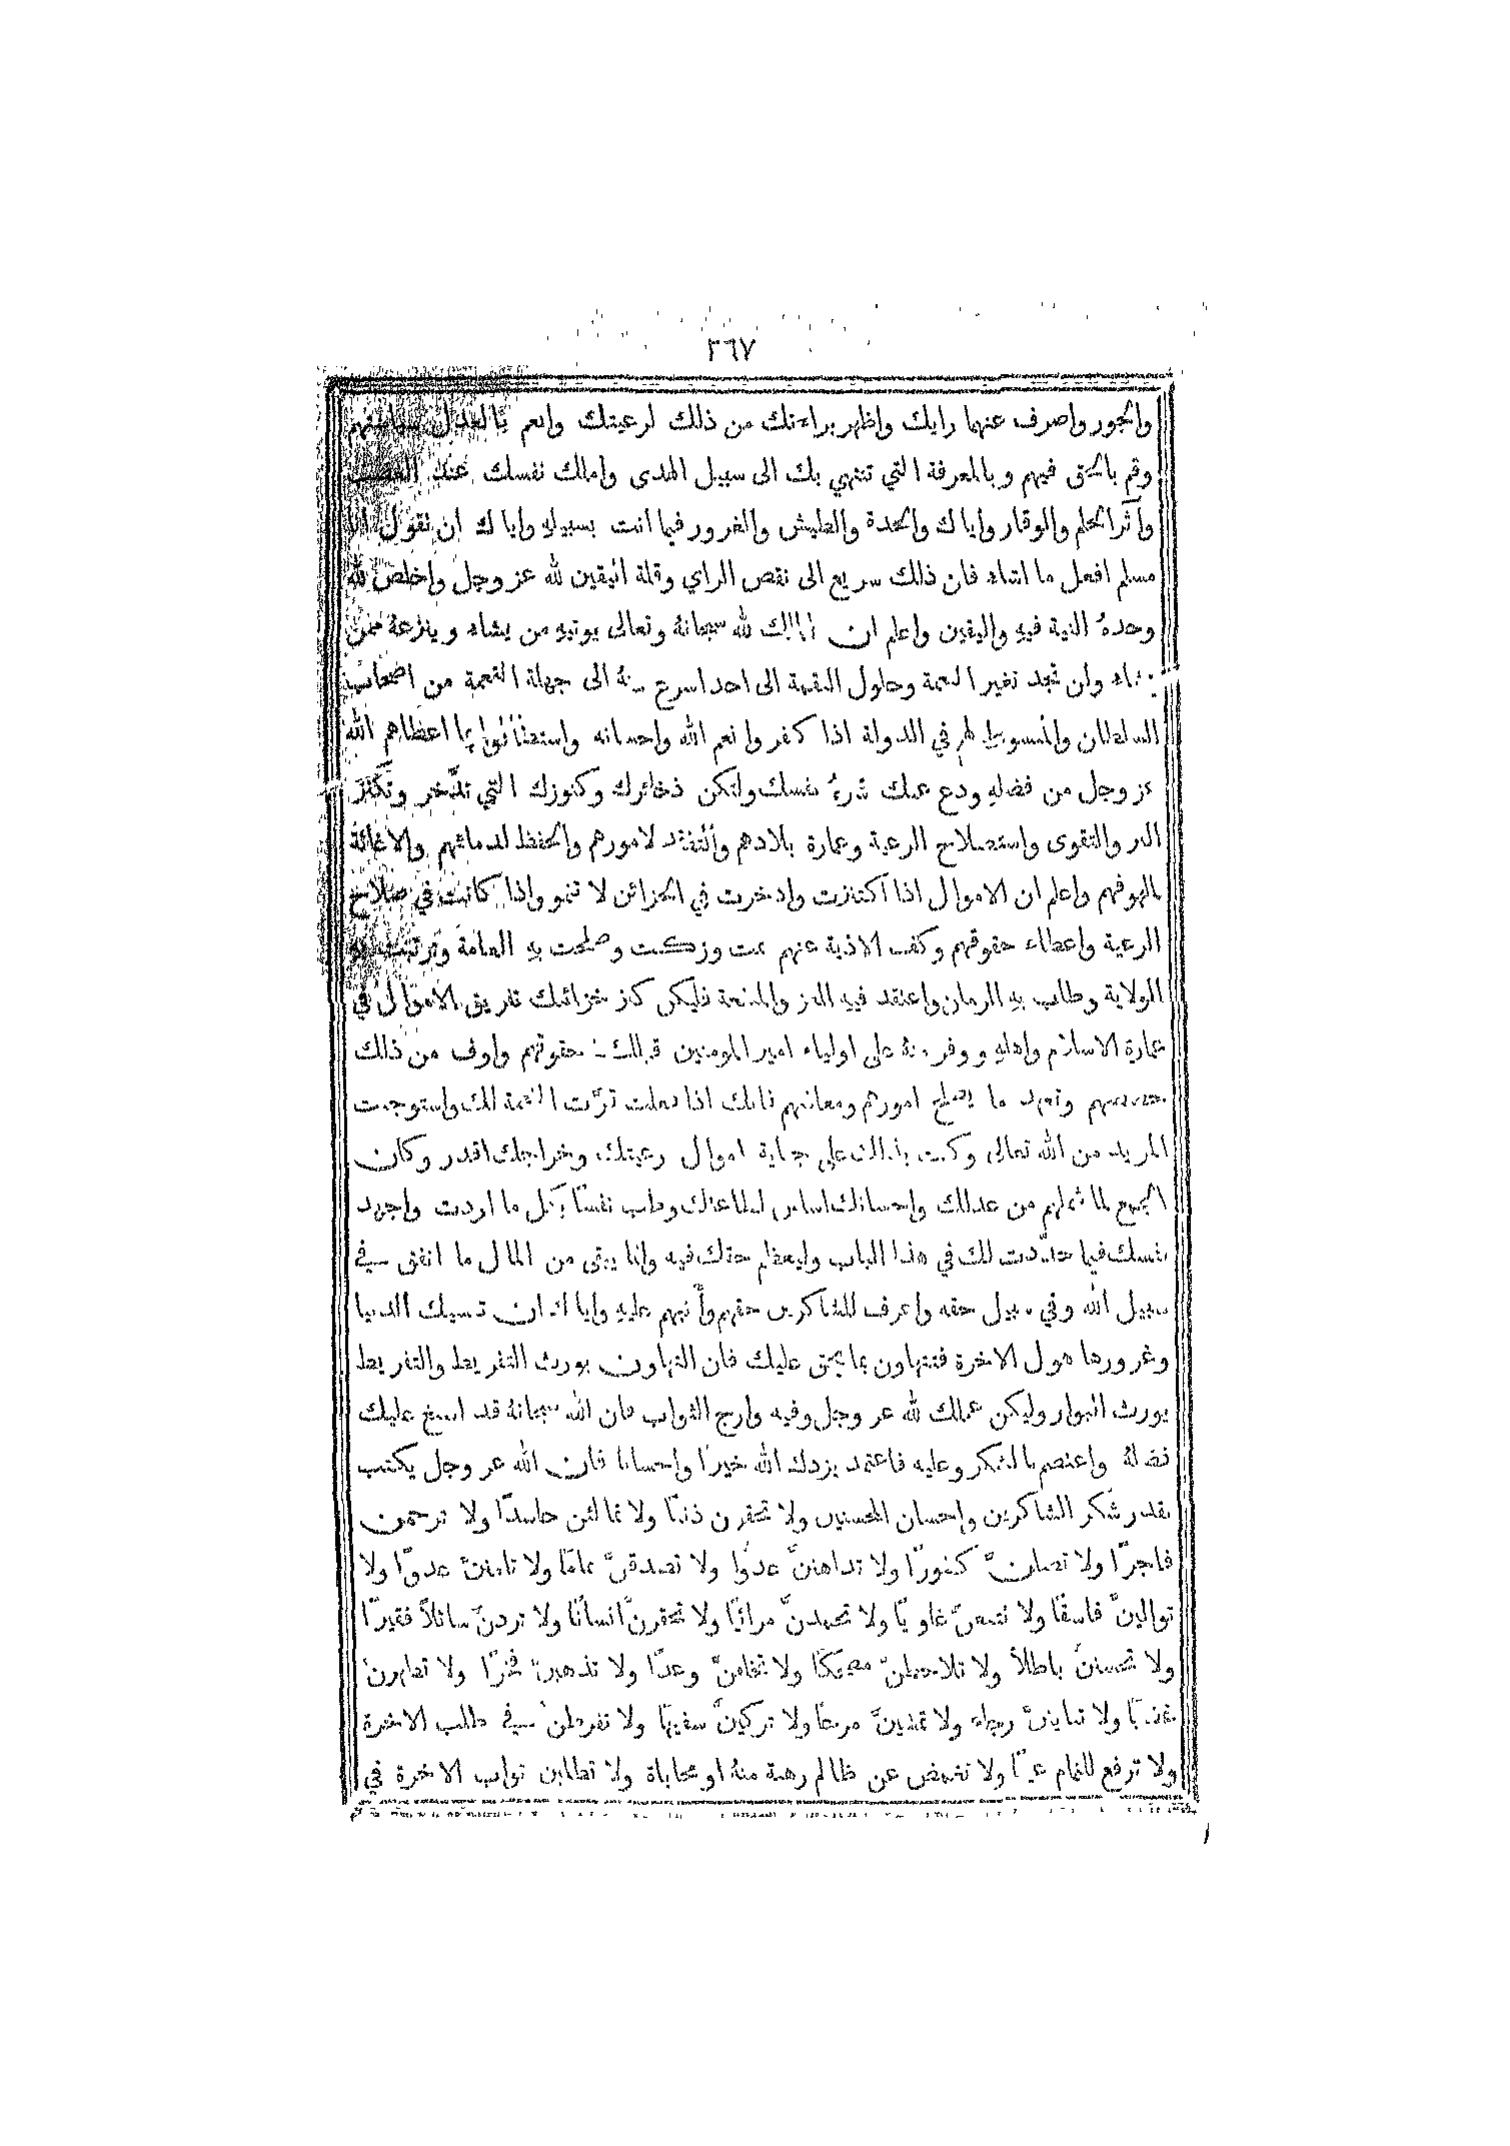 ٢٦٧
والجور واصرف عنهما رايك واظهر براءتك من ذلك لرعيتك وانعم بالعدل سياستهم
وقم بالحق فيهم وبالمعرفة التي تنتهي بك الى سبيل الهدى واملك نفسك عند الغضب
وآثر الحلم والوقار واياك والحدة والطيش والغرور فيما انت بسبيله واياك ان تقول انا
مسلم افعل ما اشاء فان ذلك سريع الى نقص الراي وقلة اليقين لله عز وجل واخلص لله
وحدهُ النية فيه واليقين واعلم ان الملك لله سبحانهُ وتعالى يوتيه من يشاء وينزعهُ ممن
يشاء ولن تجد تغير النعمة وحلول النقمة الى احد اسرع منهُ الى جهلة النعمة من اصحاب
السلطان والمبسوط لهم في الدولة اذا كفروا نعم الله واحسانه واستطالوا بما اعطاهم الله
عز وجل من فضله ودع عنك شرهُ نفسك ولتكن ذخائرك وكنوزك التي تدَّخر وتكنز
البر والتقوى واستصلاح الرعية وعمارة بلادهم والتفقد لامورهم والحفظ لدمائهم والاغاثة
لملهوفهم واعلم ان الاموال اذا اكتنزت وادخرت في الخزائن لا تنمو واذا كانت في صلاح
الرعية واعطاء حقوقهم وكف الاذية عنهم نمت وزكت وصلحت به العامة وترتبت به
الولاية وطاب به الزمان واعتقد فيه العز والمنعة فليكن كنز خزائنك تفريق الاموال في
عمارة الاسلام واهله ووفر منهُ على اولياء امير المومنين قبلك حقوقهم واوف من ذلك
حصصهم وتعهد ما يصلح امورهم ومعاشهم فانك اذا فعلت قرَّت النعمة لك واستوجبت
المزيد من الله تعالى وكنت بذلك على جباية اموال رعيتك وخراجك اقدر وكان
الجميع لما شملهم من عدلك واحسانك اساس لطاعتك وطب نفسًا بكل ما اردت واجهد
نفسك فيما حدَّدت لك في هذا الباب وليعظم حقك فيه وانما يبقى من المال ما انفق في
سبيل الله وفي سبيل حقه واعرف للشاكرين حقهم وأثبهم عليه واياك ان تنسيك الدنيا
وغرورها هول الاخرة فتتهاون بما يحق عليك فان التهاون يورث التفريط والتفريط
يورث البوار وليكن عملك لله عز وجل وفيه وارج الثواب فان الله سبحانهُ قد اسبغ عليك
فضلهُ واعتصم بالشكر وعليه فاعتمد يزدك الله خيرًا واحسانا فان الله عز وجل يكتب
بقدر شكر الشاكرين واحسان المحسنين ولا تحقرن ذنبًا ولا تمالئن حاسدًا ولا ترحمن
فاجرًا ولا تصلنَّ كفورًا ولا تداهننَّ عدوًا ولا تصدقنَّ نمامًا ولا تامننَّ عدوًّا ولا
توالينَّ فاسقًا ولا تتبعنَّ غاويًا ولا تحمدنَّ مرائيًا ولا تحقرنَّ انسانًا ولا تردنَّ سائلاً فقيرًا
ولا تحسننَّ باطلاً ولا تلاحظنَّ مضحكًا ولا تخلفنَّ وعدًا ولا تذهبنَّ فخرًا ولا تظهرنَّ
غضبًا ولا تباينَّ رجاء ولا تمشينَّ مرحًا ولا تزكينَّ سفيهًا ولا تفرطنَّ في طلب الاخرة
ولا ترفع للنمام عينًا ولا تغمض عن ظالم رهبة منهُ او محاباة ولا تطلبن ثواب الاخرة في